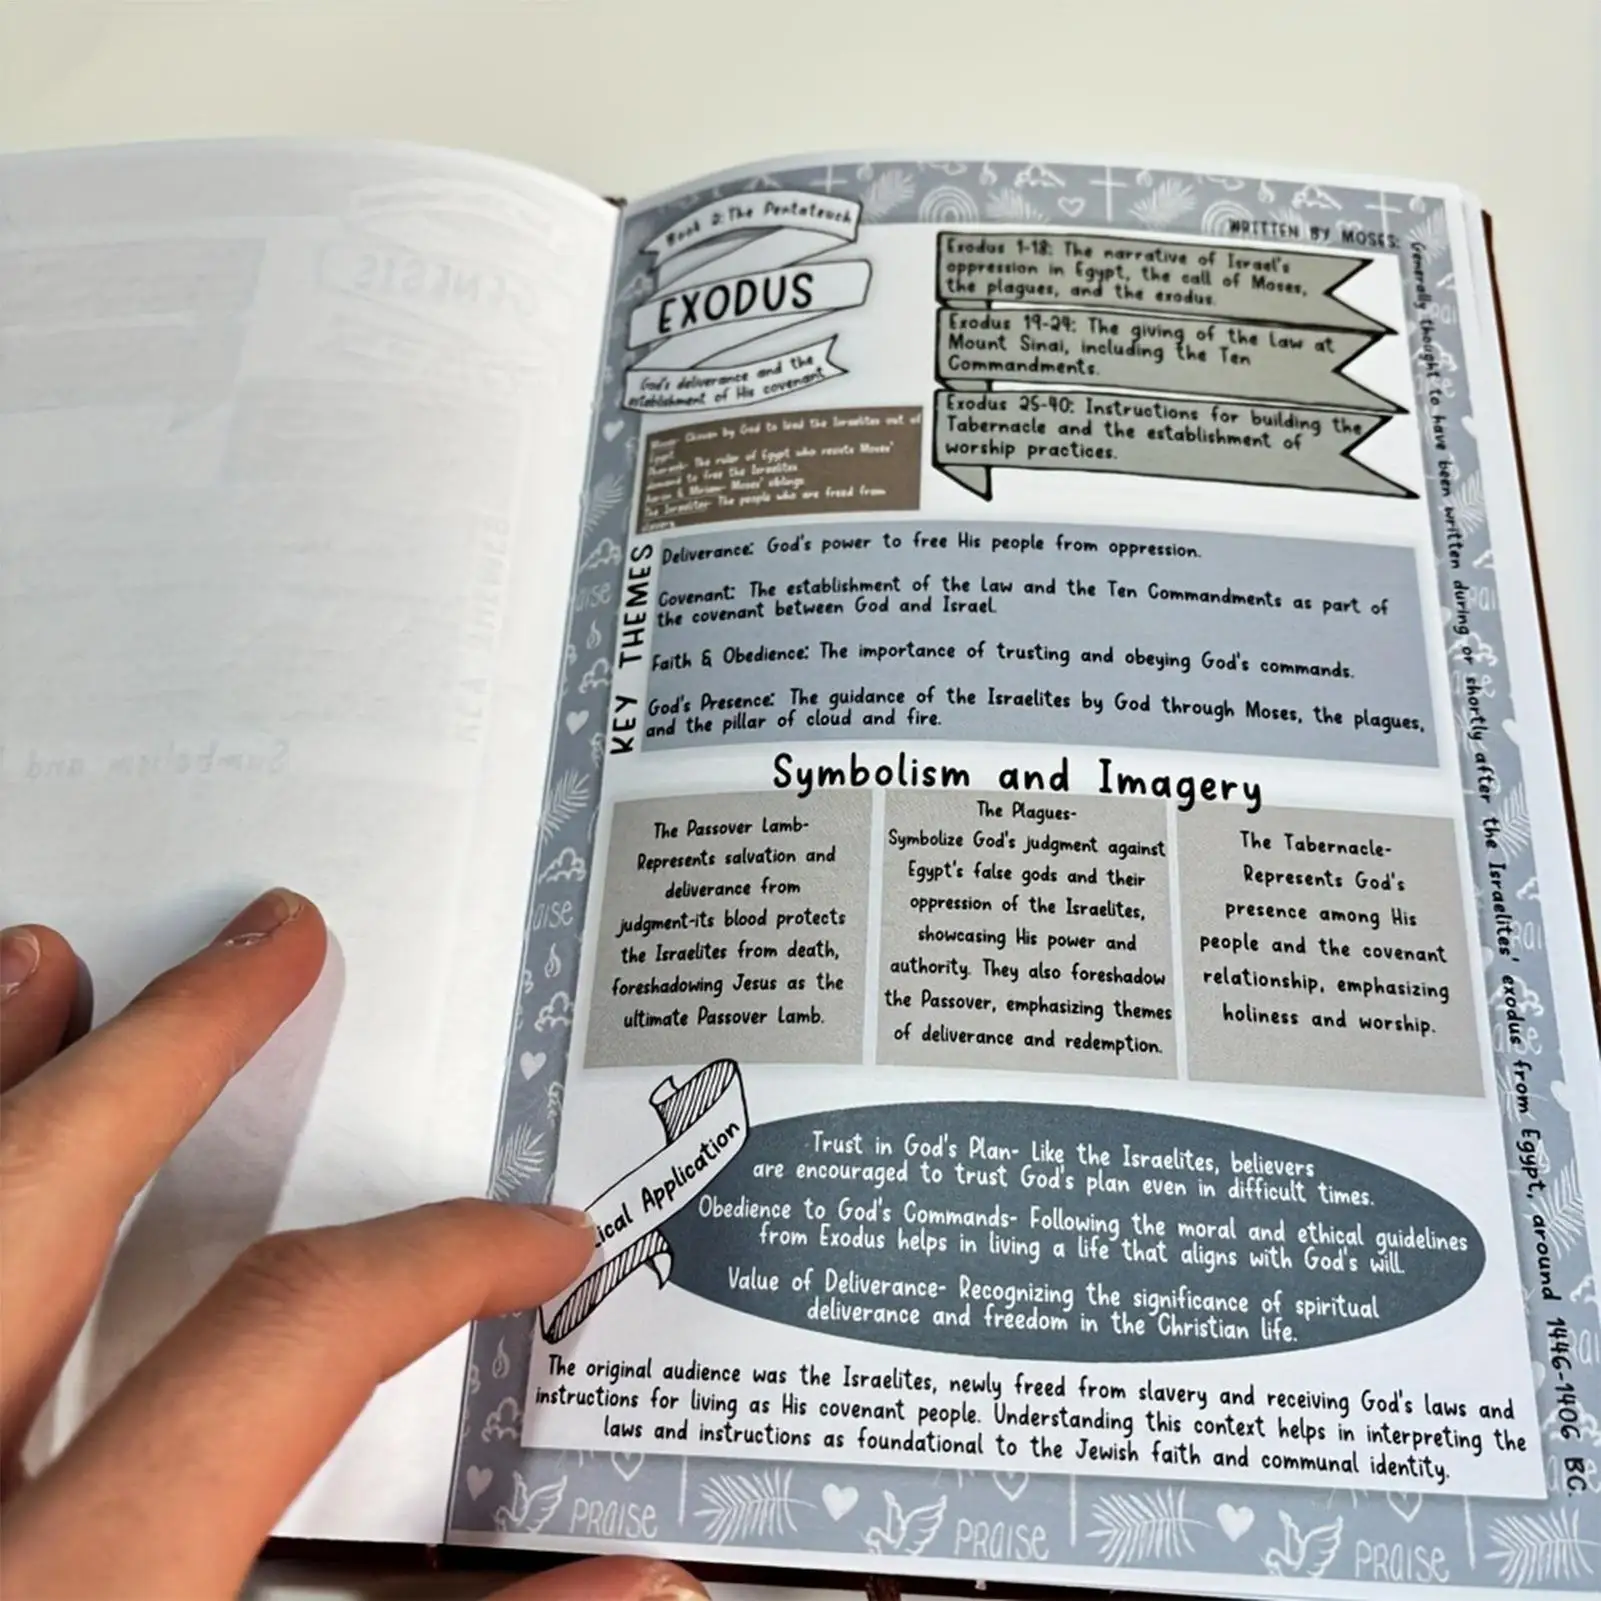 Book 2: The Pentateuch
EXODUS
God's deliverance and the
establishment of His covenant
WRITTEN BY MOSES:
Generally thought to have been written during or shortly after the Israelites' exodus from Egypt, around 1446-1406 BC.
Exodus 1-18: The narrative of Israel's
oppression in Egypt, the call of Moses,
the plagues, and the exodus.
Exodus 19-24: The giving of the Law at
Mount Sinai, including the Ten
Commandments.
Exodus 25-40: Instructions for building the
Tabernacle and the establishment of
worship practices.
Moses- Chosen by God to lead the Israelites out of
Egypt
Pharaoh- The ruler of Egypt who resists Moses'
demand to free the Israelites
Aaron & Miriam- Moses' siblings
The Israelites- The people who are freed from
slavery
KEY THEMES
Deliverance: God's power to free His people from oppression.
Covenant: The establishment of the Law and the Ten Commandments as part of
the covenant between God and Israel.
Faith & Obedience: The importance of trusting and obeying God's commands.
God's Presence: The guidance of the Israelites by God through Moses, the plagues,
and the pillar of cloud and fire.
Symbolism and Imagery
The Passover Lamb-
Represents salvation and
deliverance from
judgment-its blood protects
the Israelites from death,
foreshadowing Jesus as the
ultimate Passover Lamb.
The Plagues-
Symbolize God's judgment against
Egypt's false gods and their
oppression of the Israelites,
showcasing His power and
authority. They also foreshadow
the Passover, emphasizing themes
of deliverance and redemption.
The Tabernacle-
Represents God's
presence among His
people and the covenant
relationship, emphasizing
holiness and worship.
ical Application
Trust in God's Plan- Like the Israelites, believers
are encouraged to trust God's plan even in difficult times.
Obedience to God's Commands- Following the moral and ethical guidelines
from Exodus helps in living a life that aligns with God's will.
Value of Deliverance- Recognizing the significance of spiritual
deliverance and freedom in the Christian life.
The original audience was the Israelites, newly freed from slavery and receiving God's laws and
instructions for living as His covenant people. Understanding this context helps in interpreting the
laws and instructions as foundational to the Jewish faith and communal identity.
PRAISE PRAISE PRAISE